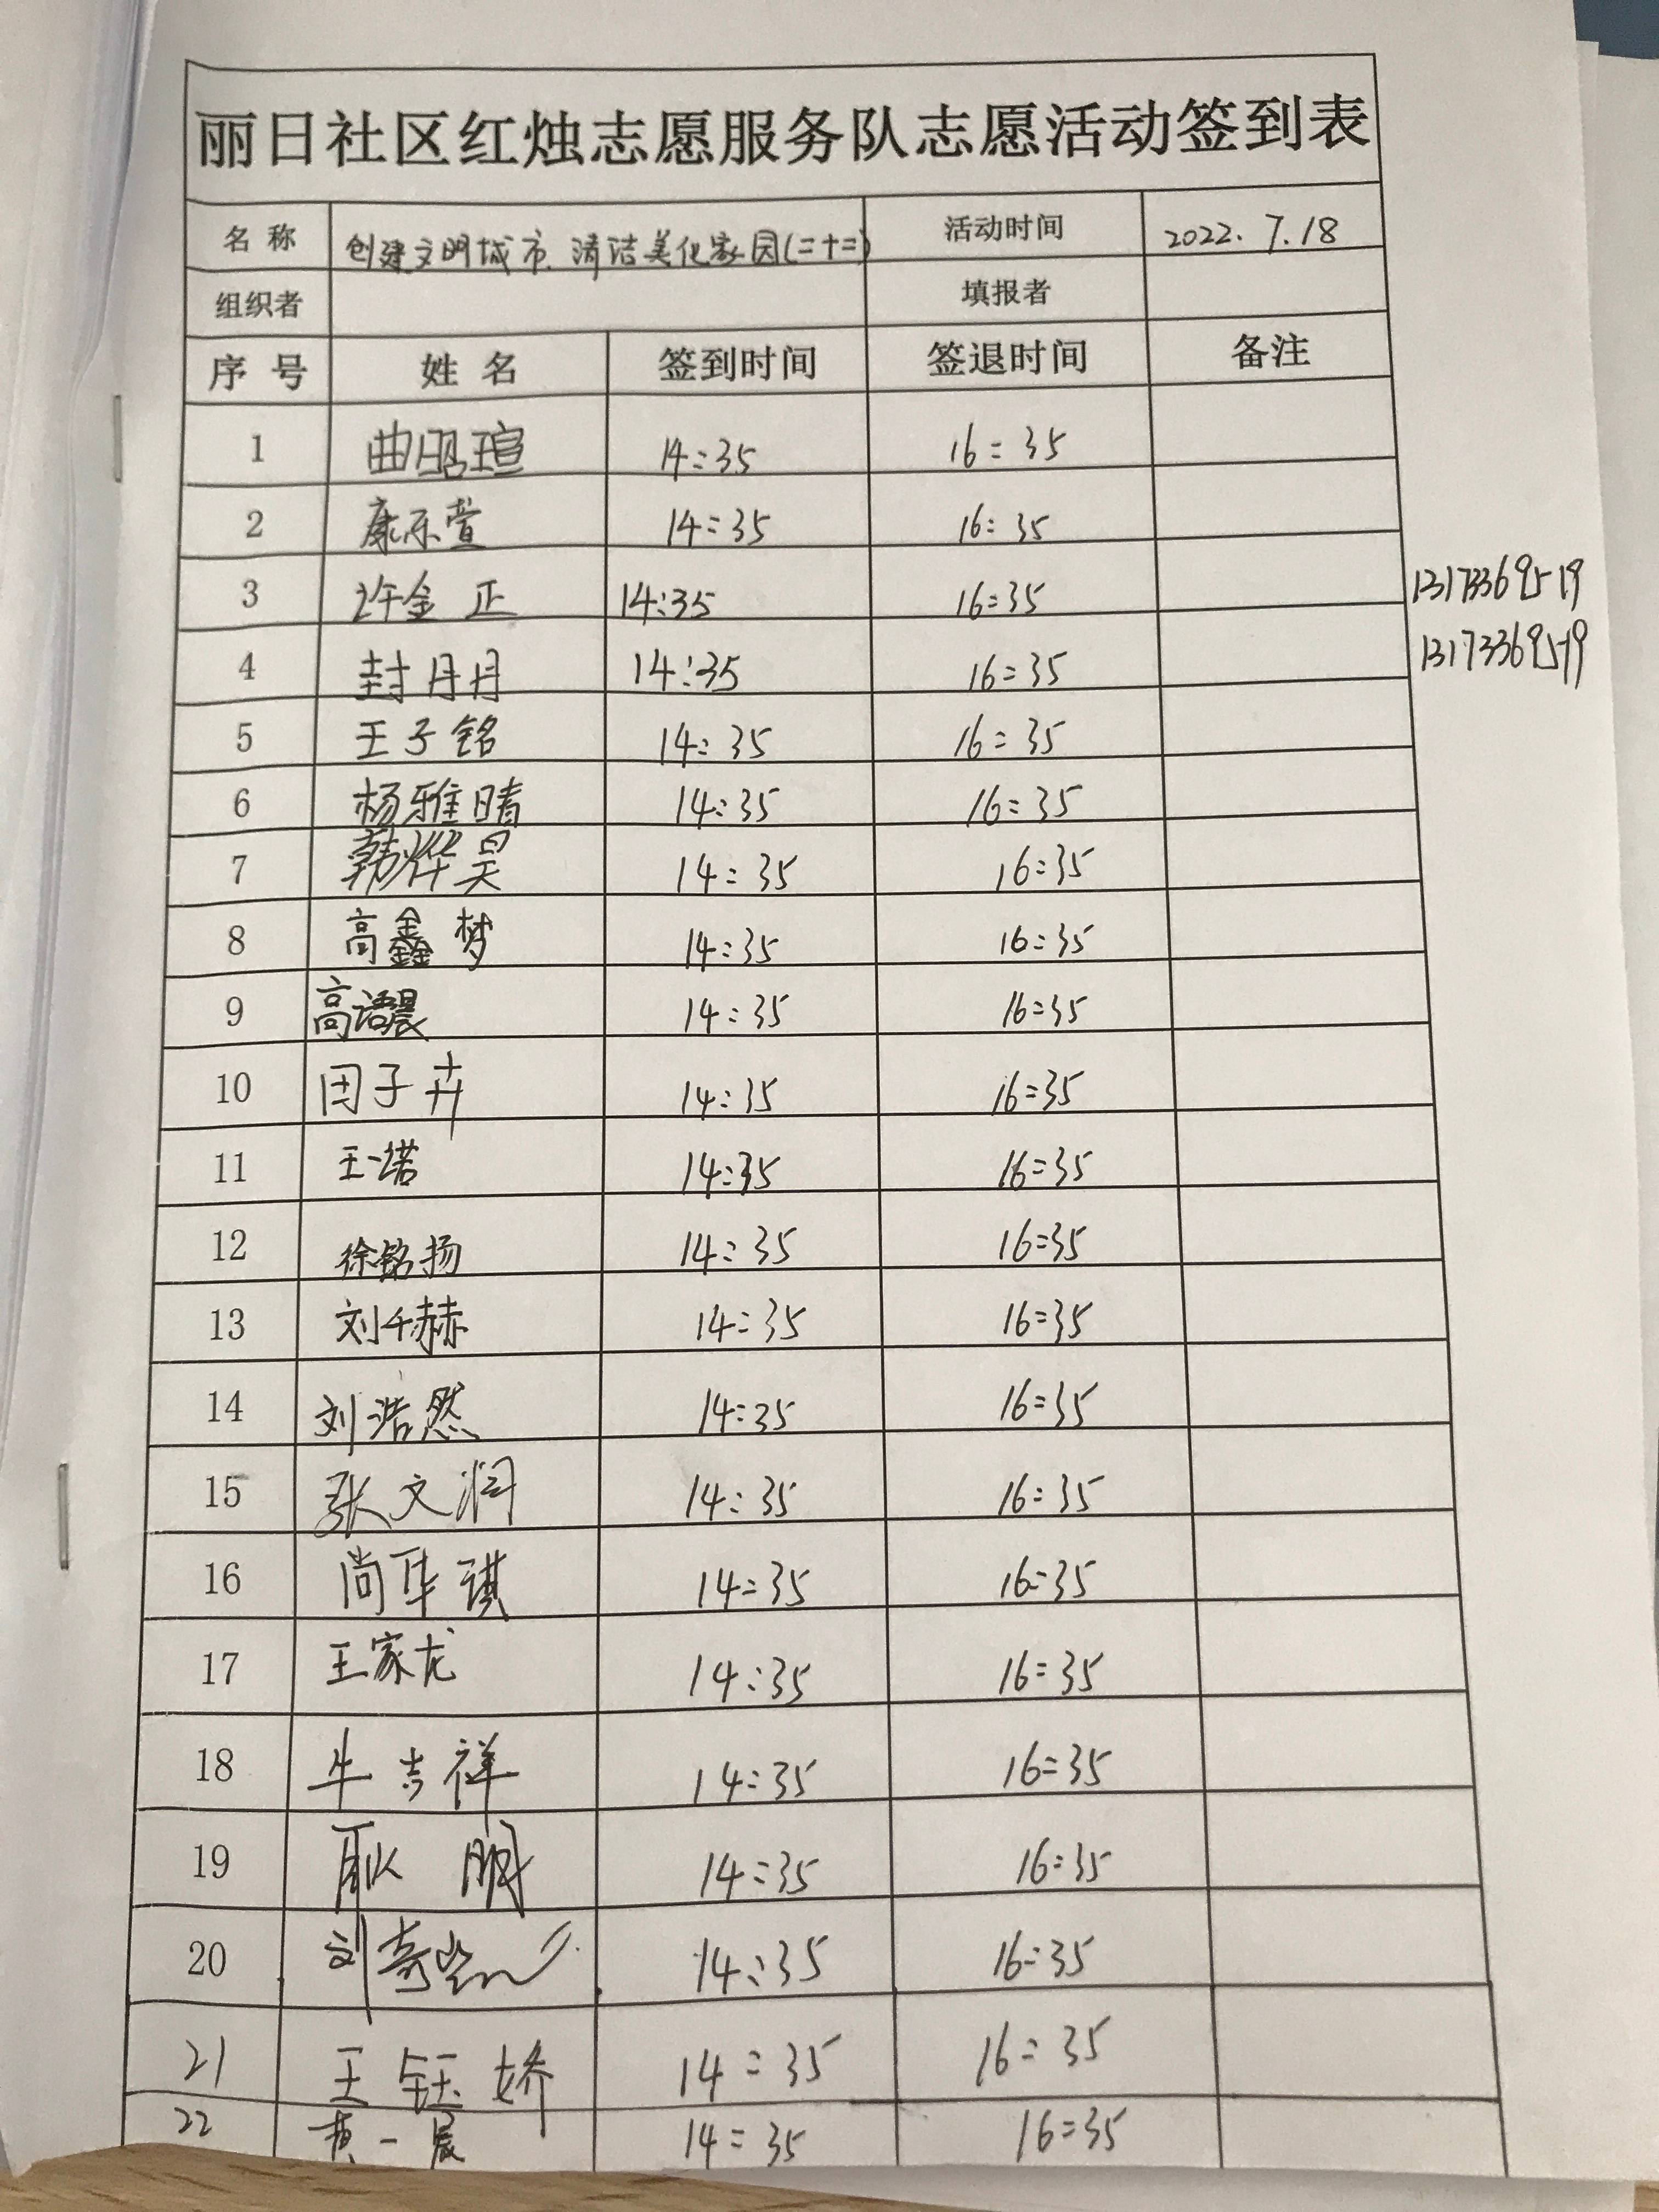 丽日社区红烛志愿服务队志愿活动签到表
名 称 创建文明城市、清洁美化家园(二十二) 活动时间 2022.7.18
组织者 填报者
序 号 姓 名 签到时间 签退时间 备注
1 曲昭瑄 14:35 16:35
2 康乐萱 14:35 16:35
3 许金正 14:35 16:35 13173369519
4 封月月 14:35 16:35 13173369519
5 王子铭 14:35 16:35
6 杨雅晴 14:35 16:35
7 韩烨昊 14:35 16:35
8 高鑫梦 14:35 16:35
9 高语晨 14:35 16:35
10 田子卉 14:35 16:35
11 王一诺 14:35 16:35
12 徐铭扬 14:35 16:35
13 刘千赫 14:35 16:35
14 刘浩然 14:35 16:35
15 张文润 14:35 16:35
16 尚华琪 14:35 16:35
17 王家龙 14:35 16:35
18 牛吉祥 14:35 16:35
19 耿 14:35 16:35
20 刘奇 14:35 16:35
21 王钰娇 14:35 16:35
22 黄一宸 14:35 16:35